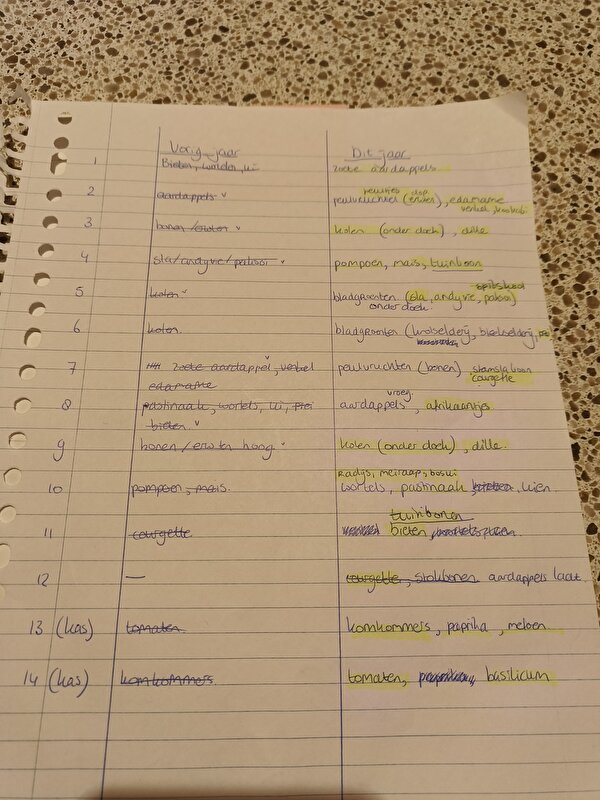 Vorig jaar Dit jaar
1 Bieten, wortelen, ui zoete aardappels
peultjes, dop
2 aardappels peulvruchten (erwten), edamame
venkel, koolrab
3 bonen/erwten kolen (onder doek), dille
4 sla/andyvie/paksoi pompoen, mais, tuinboon
spitskool
5 kolen bladgroenten (sla, andyvie, paksoi)
onder doek
6 kolen. bladgroenten (knolselderij, bleekselderij,
7 zoete aardappel, venkel peulvruchten (bonen) stamslaboon
edamame courgette
vroeg
8 pastinaak, wortels, ui, prei aardappels, afrikaantjes
bieten
9 bonen/erwten hoog. kolen (onder doek), dille.
Radijs, meiraap, bosui
10 pompoen, mais. wortels, pastinaak, bieten, uien.
tuinbonen
11 courgette bieten
12 — courgette, stokbonen aardappels laat
13 (kas) tomaten. komkommers, paprika, meloen.
14 (kas) komkommers. tomaten, paprika, basilicum